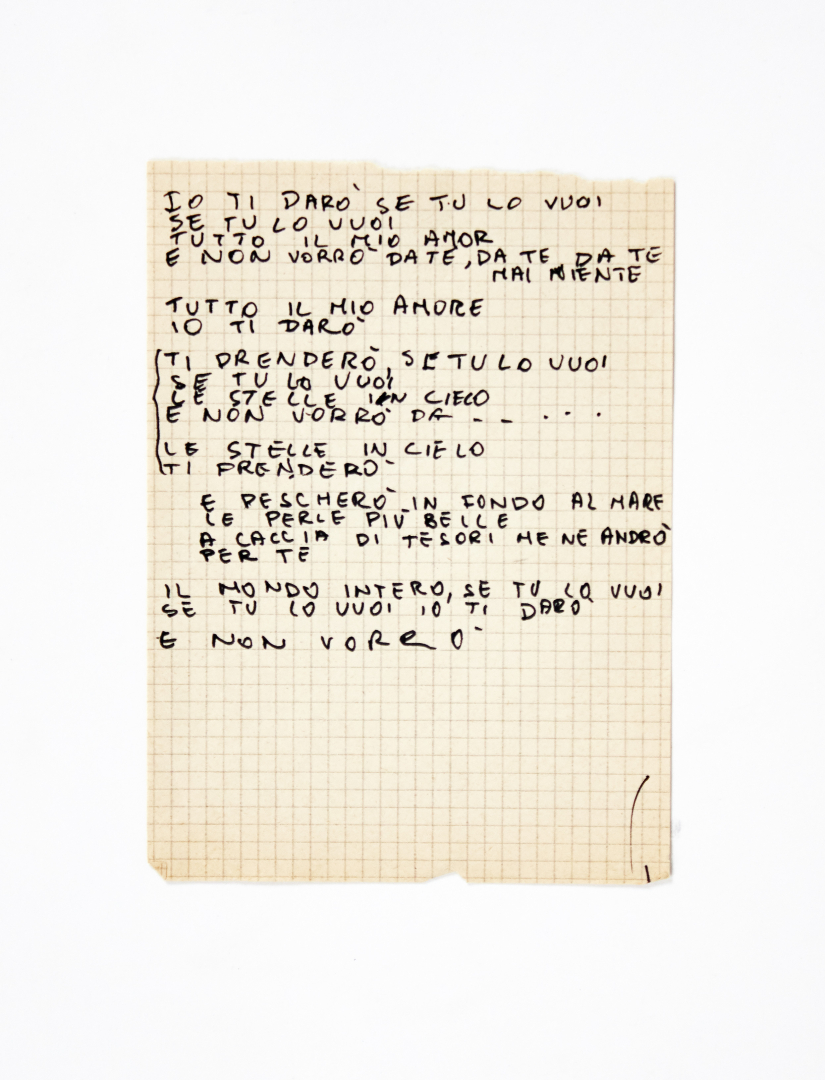 IO TI DARÒ SE TU LO VUOI
SE TU LO VUOI
TUTTO IL MIO AMOR
E NON VORRÒ DA TE, DA TE DA TE
MAI NIENTE
TUTTO IL MIO AMORE
IO TI DARÒ
TI PRENDERÒ, SE TU LO VUOI
SE TU LO VUOI
LE STELLE IN CIELO
E NON VORRÒ DA _ _ . . .
LE STELLE IN CIELO
TI PRENDERÒ
E PESCHERÒ IN FONDO AL MARE
LE PERLE PIÙ BELLE
A CACCIA DI TESORI ME NE ANDRÒ
PER TE
IL MONDO INTERO, SE TU LO VUOI
SE TU LO VUOI IO TI DARÒ
E NON VORRÒ